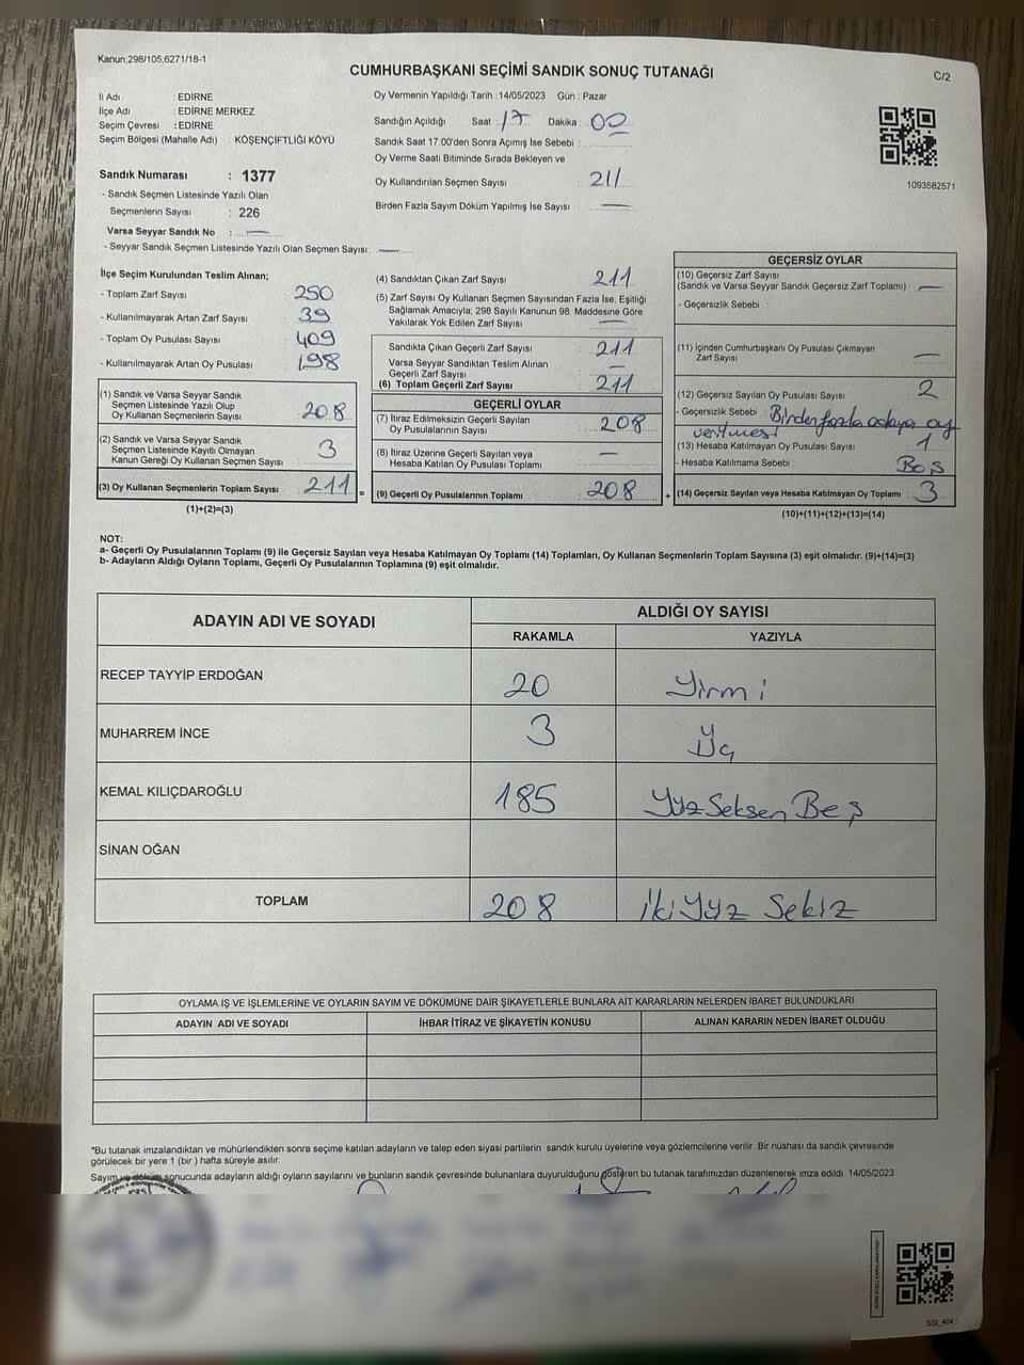 Kanun:298/105,6271/18-1
CUMHURBAŞKANI SEÇİMİ SANDIK SONUÇ TUTANAĞI
C/2
İl Adı : EDİRNE
İlçe Adı : EDİRNE MERKEZ
Seçim Çevresi : EDİRNE
Seçim Bölgesi (Mahalle Adı) KÖSENÇİFTLİĞİ KÖYÜ
Oy Vermenin Yapıldığı Tarih :14/05/2023 Gün : Pazar
Sandığın Açıldığı Saat : 17 Dakika : 00
Sandık Saat 17.00'den Sonra Açımış İse Sebebi :
Oy Verme Saati Bitiminde Sırada Bekleyen ve
Oy Kullandırılan Seçmen Sayısı 211
Birden Fazla Sayım Döküm Yapılmış İse Sayısı —
1093582571
Sandık Numarası : 1377
- Sandık Seçmen Listesinde Yazılı Olan
Seçmenlerin Sayısı : 226
Varsa Seyyar Sandık No : —
- Seyyar Sandık Seçmen Listesinde Yazılı Olan Seçmen Sayısı: —
İlçe Seçim Kurulundan Teslim Alınan;
- Toplam Zarf Sayısı 250
- Kullanılmayarak Artan Zarf Sayısı 39
- Toplam Oy Pusulası Sayısı 409
- Kullanılmayarak Artan Oy Pusulası 198
(1) Sandık ve Varsa Seyyar Sandık
Seçmen Listesinde Yazılı Olup
Oy Kullanan Seçmenlerin Sayısı 208
(2) Sandık ve Varsa Seyyar Sandık
Seçmen Listesinde Kayıtlı Olmayan
Kanun Gereği Oy Kullanan Seçmen Sayısı 3
(3) Oy Kullanan Seçmenlerin Toplam Sayısı 211 =
(1)+(2)=(3)
(4) Sandıktan Çıkan Zarf Sayısı 211
(5) Zarf Sayısı Oy Kullanan Seçmen Sayısından Fazla İse, Eşitliği
Sağlamak Amacıyla; 298 Sayılı Kanunun 98. Maddesine Göre
Yakılarak Yok Edilen Zarf Sayısı —
Sandıkta Çıkan Geçerli Zarf Sayısı 211
Varsa Seyyar Sandıktan Teslim Alınan
Geçerli Zarf Sayısı —
(6) Toplam Geçerli Zarf Sayısı 211
GEÇERLİ OYLAR
(7) İtiraz Edilmeksizin Geçerli Sayılan
Oy Pusulalarının Sayısı 208
(8) İtiraz Üzerine Geçerli Sayılan veya
Hesaba Katılan Oy Pusulası Toplamı —
(9) Geçerli Oy Pusulalarının Toplamı 208 +
GEÇERSİZ OYLAR
(10) Geçersiz Zarf Sayısı
(Sandık ve Varsa Seyyar Sandık Geçersiz Zarf Toplamı) : —
- Geçersizlik Sebebi :
(11) İçinden Cumhurbaşkanı Oy Pusulası Çıkmayan
Zarf Sayısı —
(12) Geçersiz Sayılan Oy Pusulası Sayısı 2
- Geçersizlik Sebebi Birden fazla adaya oy
verilmesi
(13) Hesaba Katılmayan Oy Pusulası Sayısı 1
- Hesaba Katılmama Sebebi : Boş
(14) Geçersiz Sayılan veya Hesaba Katılmayan Oy Toplamı 3
(10)+(11)+(12)+(13)=(14)
NOT:
a- Geçerli Oy Pusulalarının Toplamı (9) ile Geçersiz Sayılan veya Hesaba Katılmayan Oy Toplamı (14) Toplamları, Oy Kullanan Seçmenlerin Toplam Sayısına (3) eşit olmalıdır. (9)+(14)=(3)
b- Adayların Aldığı Oyların Toplamı, Geçerli Oy Pusulalarının Toplamına (9) eşit olmalıdır.
ADAYIN ADI VE SOYADI ALDIĞI OY SAYISI
RAKAMLA YAZIYLA
RECEP TAYYİP ERDOĞAN 20 Yirmi
MUHARREM İNCE 3 Üç
KEMAL KILIÇDAROĞLU 185 Yüz Seksen Beş
SİNAN OĞAN
TOPLAM 208 İki Yüz Sekiz
OYLAMA İŞ VE İŞLEMLERİNE VE OYLARIN SAYIM VE DÖKÜMÜNE DAİR ŞİKAYETLERLE BUNLARA AİT KARARLARIN NELERDEN İBARET BULUNDUKLARI
ADAYIN ADI VE SOYADI İHBAR İTİRAZ VE ŞİKAYETİN KONUSU ALINAN KARARIN NEDEN İBARET OLDUĞU
*Bu tutanak imzalandıktan ve mühürlendikten sonra seçime katılan adayların ve talep eden siyasi partilerin sandık kurulu üyelerine veya gözlemcilerine verilir. Bir nüshası da sandık çevresinde
görülecek bir yere 1 (bir ) hafta süreyle asılır.
Sayım ve döküm sonucunda adayların aldığı oyların sayılarını ve bunların sandık çevresinde bulunanlara duyurulduğunu gösteren bu tutanak tarafımızdan düzenlenerek imza edildi. 14/05/2023